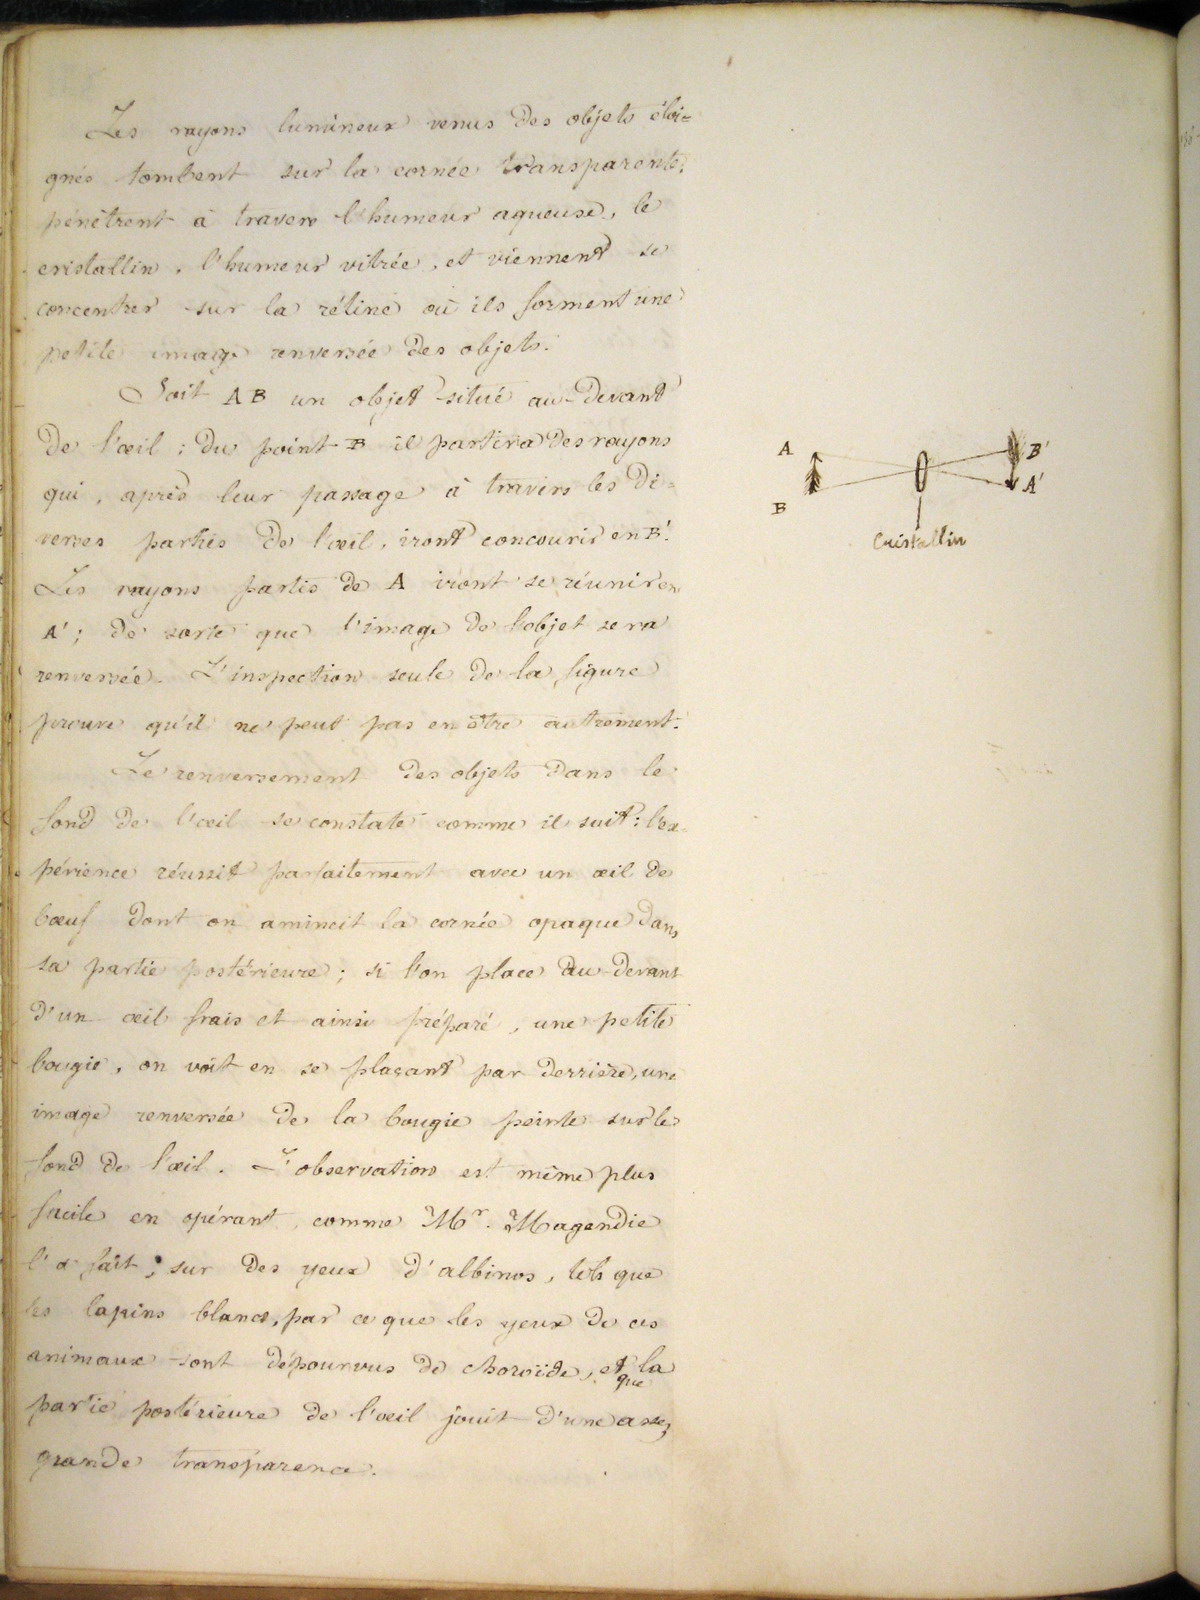 Les rayons lumineux venus des objets éloi=
gnés tombent sur la cornée transparente,
pénètrent à travers l'humeur aqueuse, le
cristallin, l'humeur vitrée, et viennent se
concentrer sur la rétine où ils forment une
petite image renversée des objets.
Soit AB un objet situé au-devant
de l'œil ; du point B il partira des rayons
qui, après leur passage à travers les di=
verses parties de l'œil, iront concourir en B'.
Les rayons partis de A iront se réunir en
A' ; de sorte que l'image de l'objet sera
renversée. L'inspection seule de la figure
prouve qu'il ne peut pas en être autrement.
Le renversement des objets dans le
fond de l'œil se constate comme il suit : l'ex-
périence réussit parfaitement avec un œil de
bœuf dont on amincit la cornée opaque dans
sa partie postérieure ; si l'on place au-devant
d'un œil frais et ainsi préparé, une petite
bougie, on voit en se plaçant par derrière, une
image renversée de la bougie peinte sur le
fond de l'œil. L'observation est même plus
facile en opérant, comme Mr. Magendie
l'a fait, sur des yeux d'albinos, tels que
les lapins blancs, par ce que les yeux de ces
animaux sont dépourvus de choroïde, et que la
partie postérieure de l'œil jouit d'une assez
grande transparence.
A
B
B'
A'
Cristallin